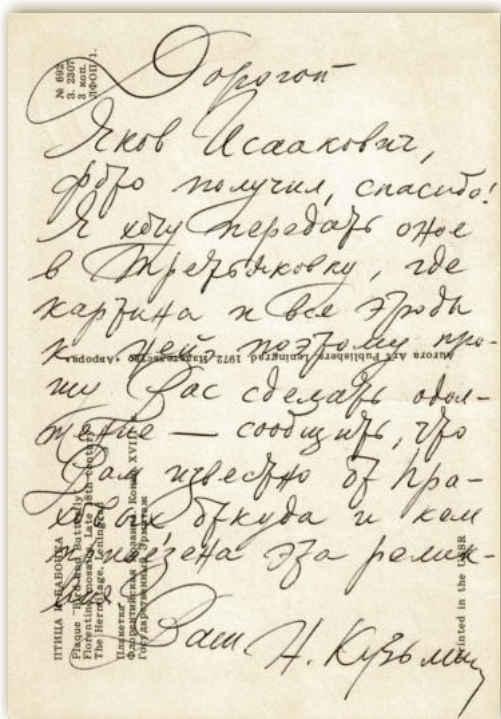 Дорогой
Яков Исаакович,
фото получил, спасибо!
Я хочу передать оное
в Третьяковку, где
картина и все этюды
к ней, поэтому про-
шу Вас сделать одол-
жение — сообщить, что
Вам известно от Пра-
ховых, откуда и кем
привезена эта релик-
вия.
Ваш Н. Кузьмин
№ 692
З. 2307
3 коп.
ЛФОП 1.
Aurora Art Publishers. Leningrad 1972 Издательство «Аврора»
ПТИЦА И БАБОЧКА
Plaque "Bird and Butterfly"
Florentine mosaic. Late 18th century
The Hermitage, Leningrad
Плакетка
Флорентийская мозаика. Конец XVIII в.
Государственный Эрмитаж
Printed in the USSR